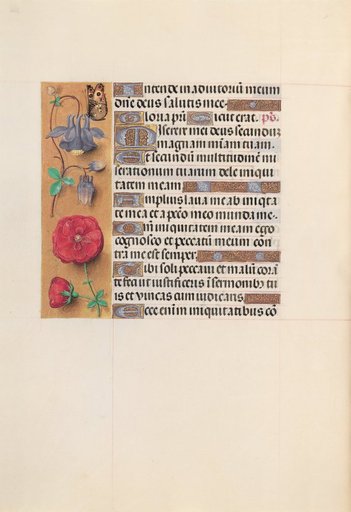 Intende in adiutoriū meum
dn̄e deus salutis mee.
Gloria pr̄i Sicut erat. ps.
Miserere mei deus secundū
magnam mīam tuam.
Et secundū multitudinē mi
serationum tuarum dele iniqui
tatem meam
Amplius laua me ab iniqui
tate mea et a pctō meo munda me.
Qm̄ iniquitatem meam ego
cognosco et peccatū meum con
tra me est semper.
Tibi soli peccaui et malū corā
te feci ut iustificeris ī sermonibꝫ tu
is et vincas cum iudicaris
Ecce enī in iniquitatibus cō